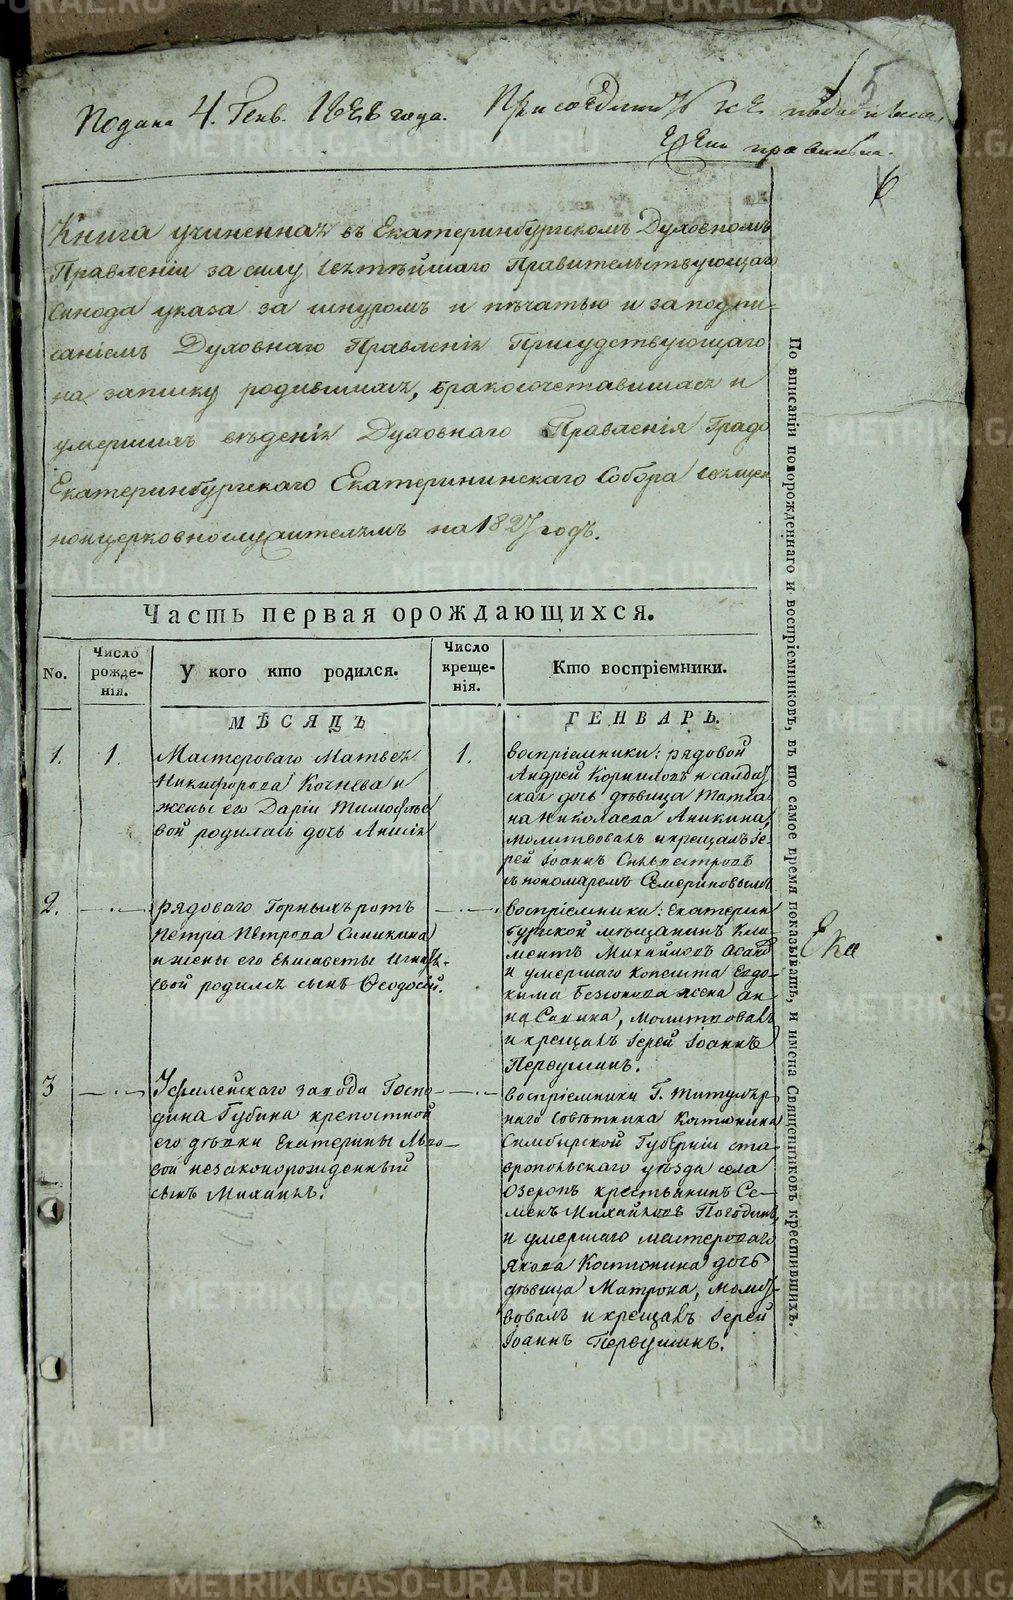 5
Подана 4. Генв. 1828 года. Присоединить къ
6
Книга учиненная въ Екатеринбургскомъ Духовномъ
Правленіи за силу Святѣйшаго Правительствующаго
Синода указа за шнуромъ и печатью и за подпи-
саніемъ Духовнаго Правленія Присудствующаго
на записку родившихся, бракосочетавшихся и
умершихъ вѣденія Духовнаго Правленія Градо
Екатеринбургскаго Екатерининскаго Собора священ
ноцерковнослужителямъ на 1827 годъ.
Часть первая орождающихся.
No.
Число рожде-нія.
У кого кто родился.
Число креще-нія.
Кто воспріемники.
МѢСЯЦЪ
ГЕНВАРЬ.
1. 1.
Мастероваго Матвея
Никифорова Кочнева и
жены его Даріи Тимофѣе
вой родилась дочь Анисія
1.
воспріемники: рядовой
Андрей Корниловъ и салдат
ская дочь дѣвица Татіа
на Николаева Аникина,
молитвовалъ и крещалъ Іе-
рей Іоаннъ Сильвестровъ
съ пономаремъ Семериновымъ
2. —·—
рядоваго Горныхъ ротъ
Петра Петрова Синикина
и жены его Елисаветы Игнать-
евой родился сынъ Ѳеодосій.
—·—
воспріемники: Екатерин
бургской мѣщанинъ Кли
ментъ Михайловъ
и умершаго копеиста Евдо
кима жена Ан-
на Савина, молитвовалъ
и крещалъ Іерей Іоаннъ
Первушинъ.
3 —·—
Уфалейскаго завода Госпо-
дина Губина крепостной
его дѣвки Екатерины Льво-
вой незаконорожденный
сынъ Михаилъ.
—·—
воспріемники Г. Титуляр
наго Совѣтника Костюнина
Симбирской Губерніи ста-
вропольскаго уѣзда села
Озерокъ крестьянинъ Се-
менъ Михайловъ Погодинъ,
и умершаго мастероваго
Якова Костюнина дочь
дѣвица Матрона, молит-
вовалъ и крещалъ Іерей
Іоаннъ Первушинъ.
По вписаніи новорожденнаго и воспріемниковъ, въ то самое время показывать, и имена Священниковъ крестившихъ.
Ека
METRIKI.GASO-URAL.RU